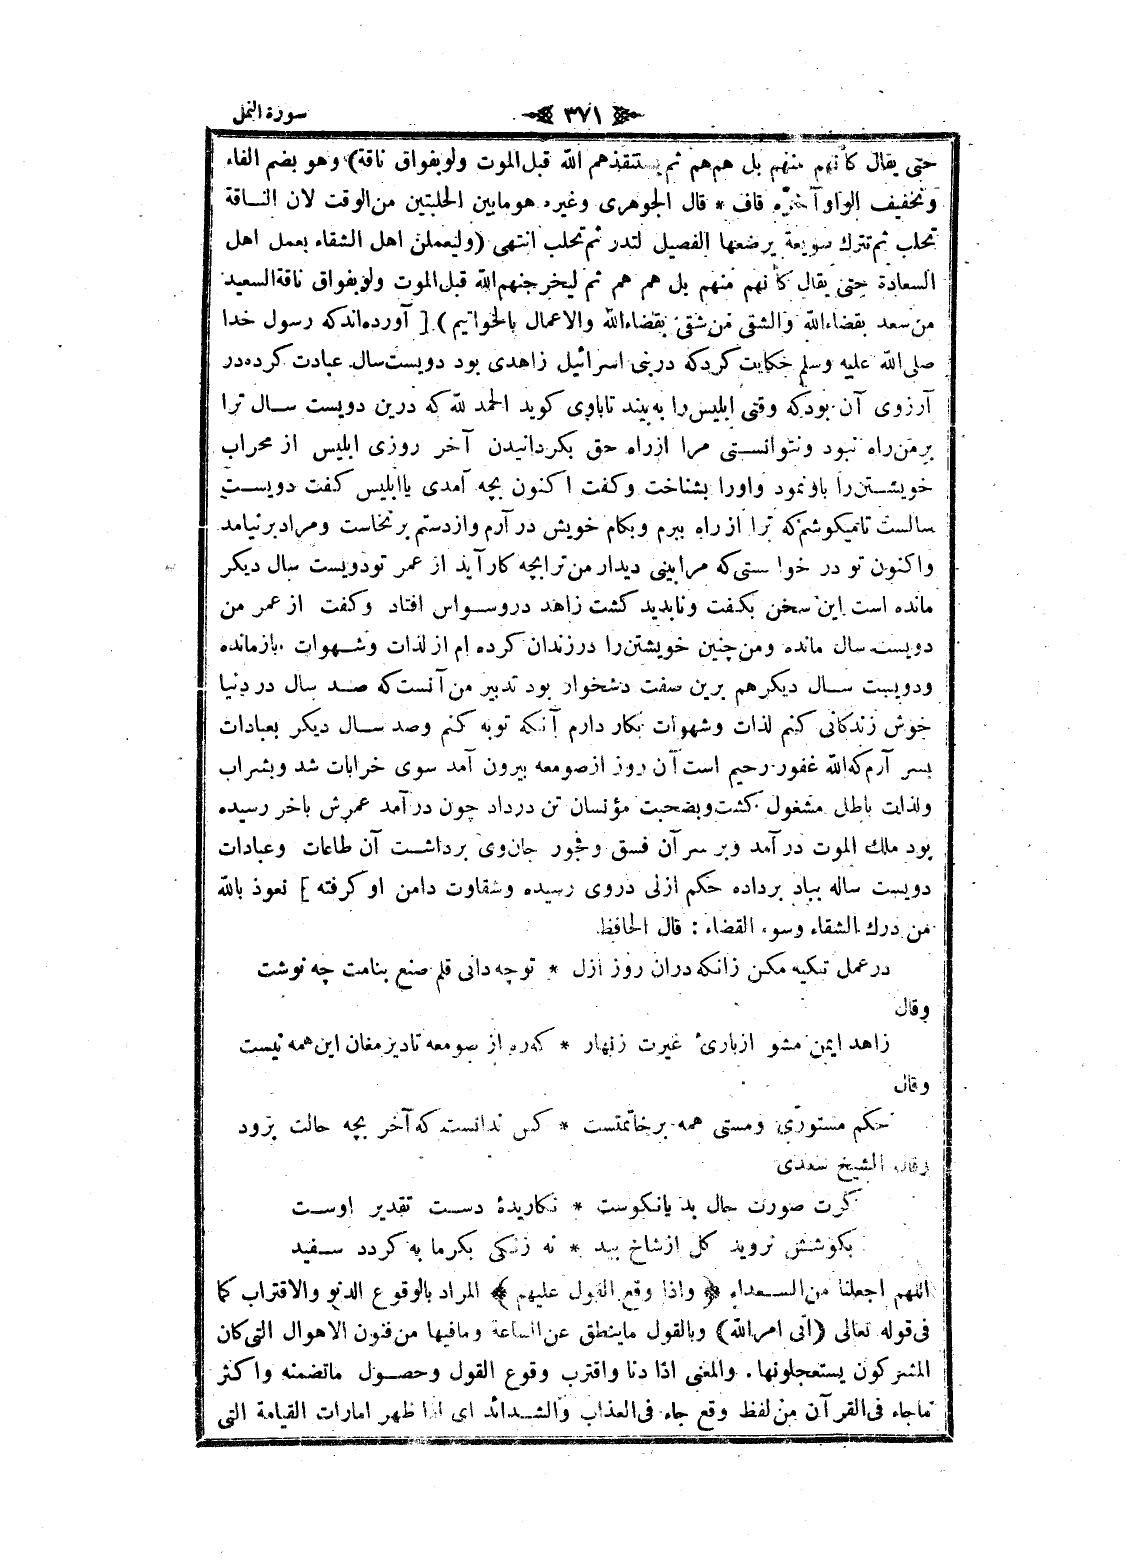 سورة النمل
٣٧١
حتى يقال كأنهم منهم بل هم هم ثم يستنقذهم الله قبل الموت ولو بفواق ناقة) وهو بضم الفاء
وتخفيف الواو وآخره قاف * قال الجوهرى وغيره هو مابين الحلبتين من الوقت لان الناقة
تحلب ثم تترك سويعة يرضعها الفصيل لتدر ثم تحلب انتهى (وليعملن اهل الشقاء بعمل اهل
السعادة حتى يقال كأنهم منهم بل هم هم ثم ليخرجنهم الله قبل الموت ولو بفواق ناقة السعيد
من سعد بقضاء الله والشقى من شقى بقضاء الله والاعمال بالخواتيم) [ آورده اند كه رسول خدا
صلى الله عليه وسلم حكايت كرد كه در بنى اسرائيل زاهدى بود دويست سال عبادت كرده در
آرزوى آن بود كه وقتى ابليس را به بيند تاباوى كويد الحمد لله كه درين دويست سال ترا
بر من راه نبود ونتوانستى مرا از راه حق بكردانيدن آخر روزى ابليس از محراب
خويشتن را باو نمود واورا بشناخت وكفت اكنون بچه آمدى يا ابليس كفت دويست
سالست تاميكوشم كه ترا از راه ببرم وبكام خويش در آرم واز دستم برنخاست ومراد برنيامد
واكنون تو در خواستى كه مرا بينى ديدار من ترا بچه كار آيد از عمر تو دويست سال ديكر
مانده است اين سخن بكفت ونابديد كشت زاهد در وسواس افتاد وكفت از عمر من
دويست سال مانده ومن چنين خويشتن را در زندان كرده ام از لذات وشهوات بازمانده
ودويست سال ديكر هم برين صفت دشخوار بود تدبير من آنست كه صد سال در دنيا
خوش زندكانى كنم لذات وشهوات بكار دارم آنكه توبه كنم وصد سال ديكر بعبادات
بسر آرم كه الله غفور رحيم است آن روز از صومعه بيرون آمد سوى خرابات شد وبشراب
ولذات باطل مشغول كشت وبصحبت مؤنسان تن درداد چون درآمد عمرش باخر رسيده
بود ملك الموت در آمد وبر سر آن فسق وفجور جان وى برداشت آن طاعات وعبادات
دويست ساله بباد برداده حكم ازلى دروى رسيده وشقاوت دامن او كرفته ] نعوذ بالله
من درك الشقاء وسوء القضاء : قال الحافظ
در عمل تكيه مكن زانكه دران روز ازل * توچه دانى قلم صنع بنامت چه نوشت
وقال
زاهد ايمن مشو از بازئ غيرت زنهار * كه ره از صومعه تادير مغان اين همه نيست
وقال
حكم مستورى ومستى همه بر خاتمتست * كس ندانست كه آخر بچه حالت برود
وقال الشيخ سعدى
كرت صورت حال بد يا نكوست * نكاريدۀ دست تقدير اوست
بكوشش نرويد كل از شاخ بيد * نه زنكى بكرما به كردد سفيد
اللهم اجعلنا من السعداء ﴿ واذا وقع القول عليهم ﴾ المراد بالوقوع الدنو والاقتراب كما
فى قوله تعالى (أتى امر الله) وبالقول ماينطق عن الساعة ومافيها من فنون الاهوال التى كان
المشركون يستعجلونها . والمعنى اذا دنا واقترب وقوع القول وحصول ماتضمنه واكثر
ماجاء فى القرآن من لفظ وقع جاء فى العذاب والشدائد اى اذا ظهر امارات القيامة التى